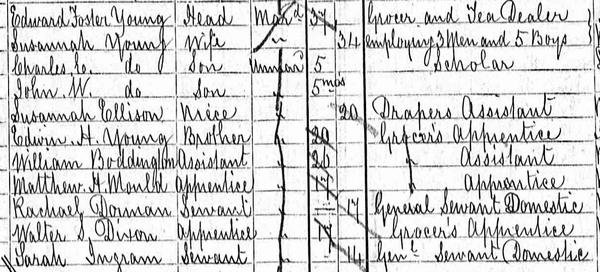 Edward Foster Young Head Mar^d 34 Grocer and Tea Dealer
Susannah Young Wife " 34 employing 3 Men and 5 Boys
Charles E. do Son Unmar^d 5 Scholar
John W. do Son 5 mos
Susannah Ellison Niece 20 Drapers Assistant
Edwin. H. Young Brother 20 Grocer's Apprentice
William Boddington Assistant 20 Assistant
Matthew H. Mould Apprentice Apprentice
Rachael Dorman Servant 17 General Servant Domestic
Walter S. Dixon Apprentice Grocers Apprentice
Sarah Ingram Servant 14 Gen^l Servant Domestic